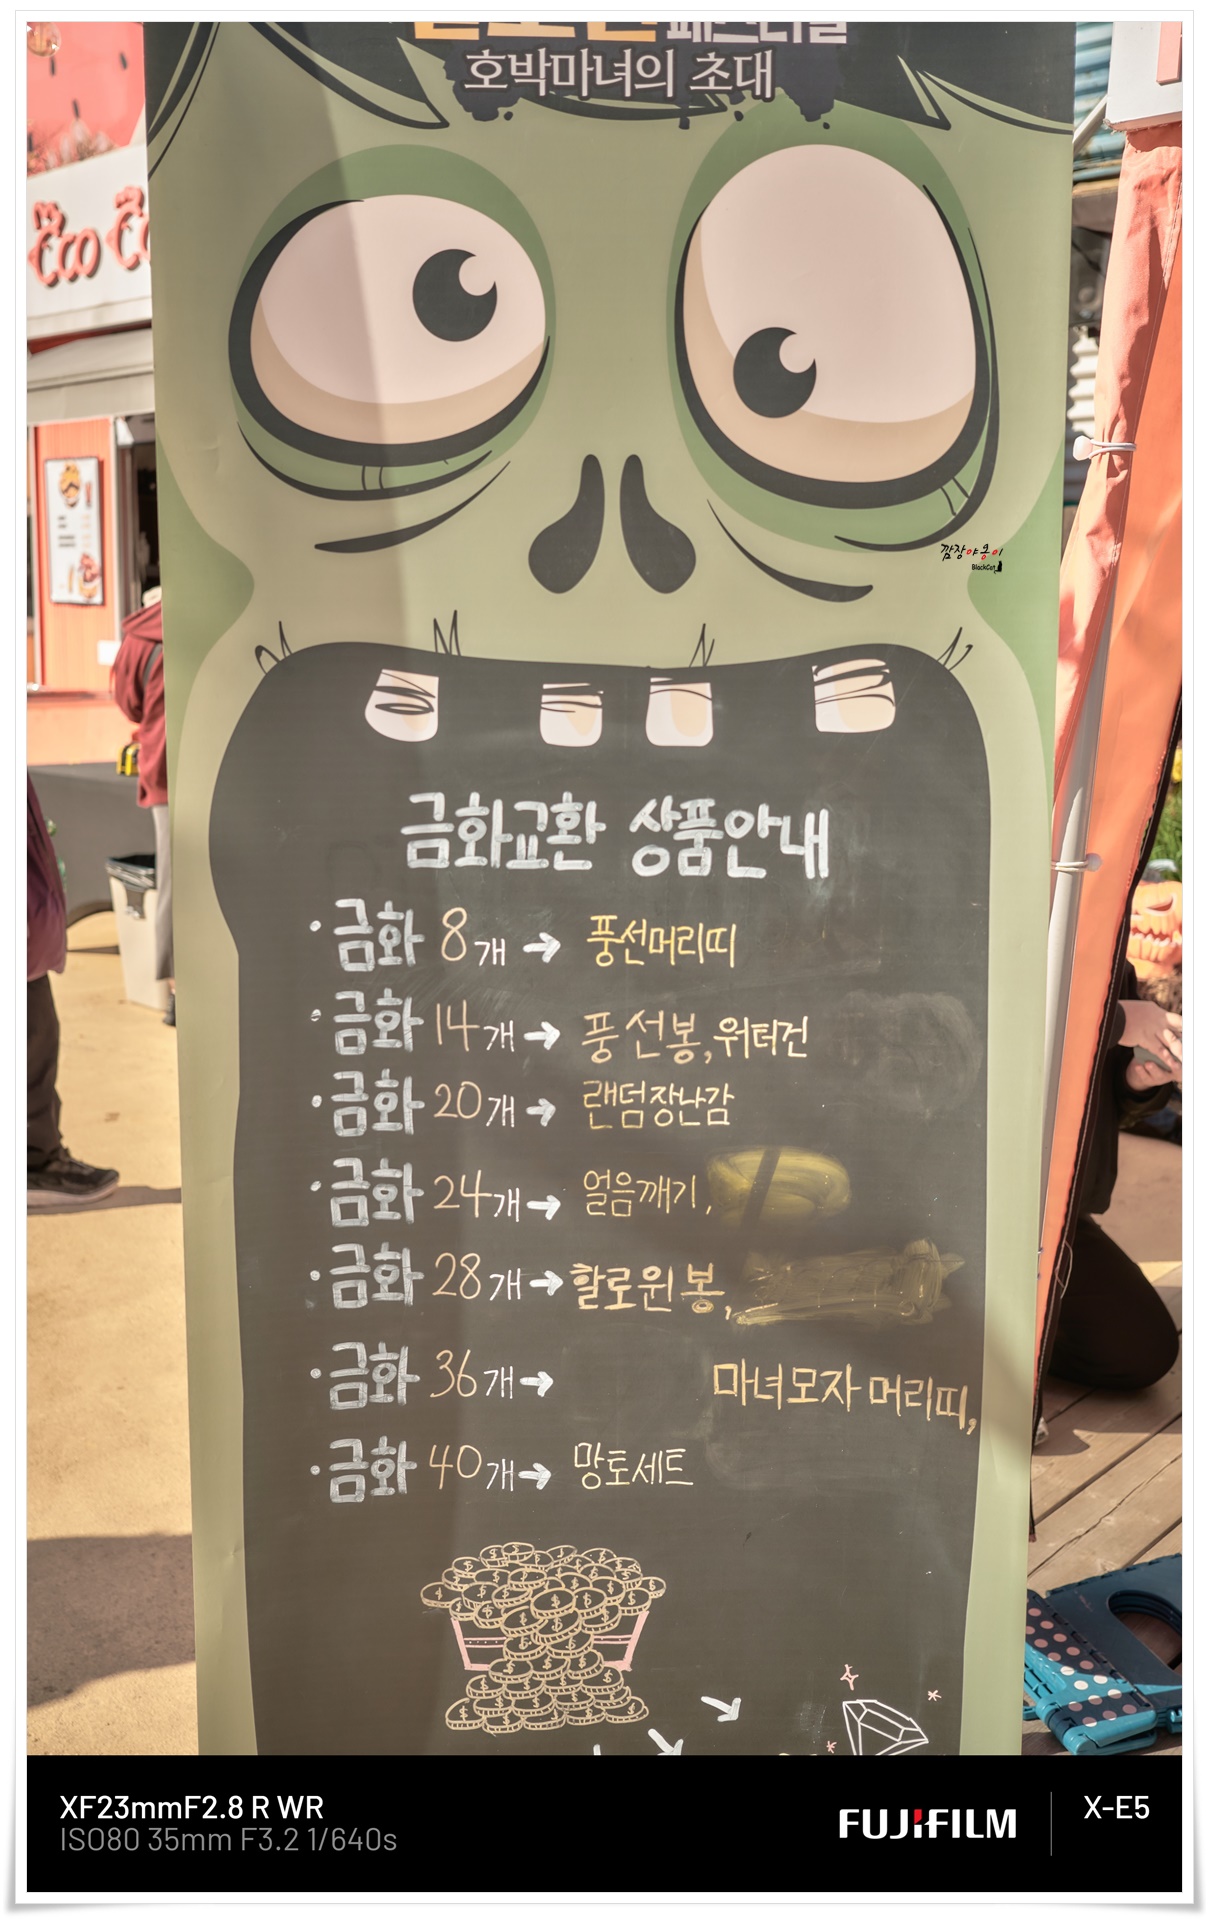 호박마녀의 초대
깜장야옹이
BlackCat
금화교환 상품안내
· 금화 8개 → 풍선머리띠
· 금화 14개 → 풍선봉, 워터건
· 금화 20개 → 랜덤장난감
· 금화 24개 → 얼음깨기,
· 금화 28개 → 할로윈봉,
· 금화 36개 → 마녀모자 머리띠,
· 금화 40개 → 망토세트
XF23mmF2.8 R WR
ISO80 35mm F3.2 1/640s
FUJIFILM
X-E5